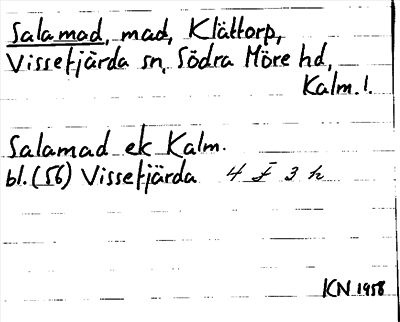 Salamad, mad, Klättorp,
Vissefjärda sn, Södra Möre hd,
Kalm. l.
Salamad ek Kalm.
bl. (56) Vissefjärda 4 f 3 h
KN 1958